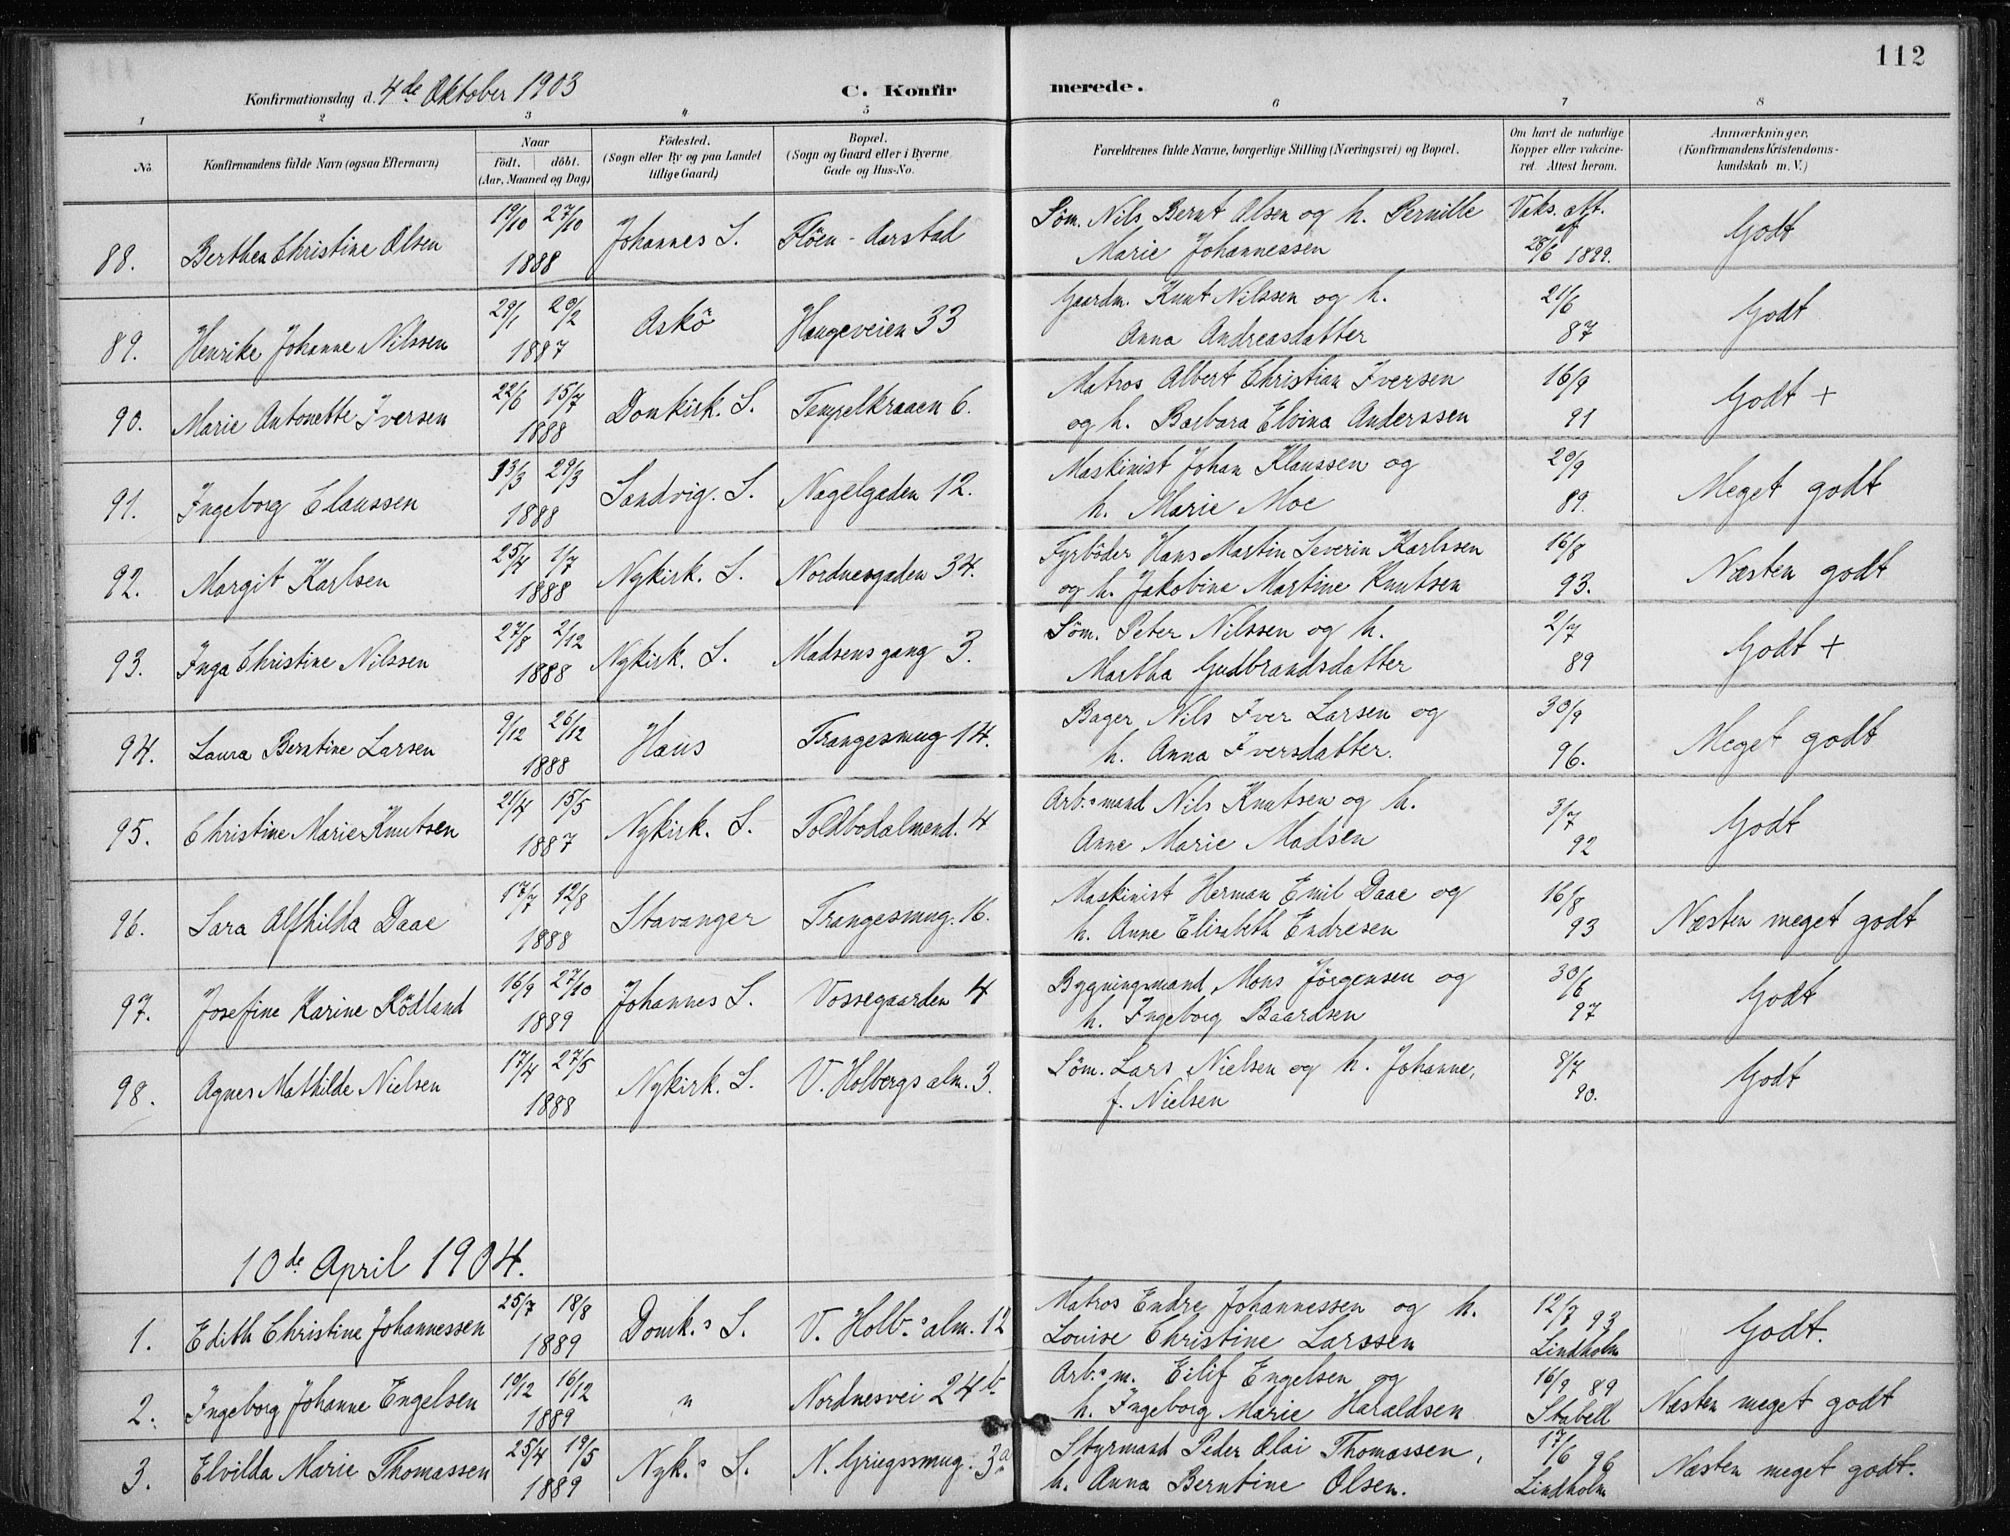 112
Konfirmationsdag d. 4de Oktober 1903 C. Konfirmerede.
1 2 3 4 5 6 7 8
No. Konfirmandens fulde Navn (ogsaa Efternavn) Naar födt. döbt. (Aar, Maaned og Dag) Födested. (Sogn eller By og paa Landet tillige Gaard) Bopæl. (Sogn og Gaard eller i Byerne Gade og Hus-No. Forældrenes fulde Navne, borgerlige Stilling (Næringsvei) og Bopæl. Om havt de naturlige Kopper eller vakcineret. Attest herom. Anmærkninger, (Konfirmandens Kristendomskundskab m. V.)
88. Berthea Christine Olsen 19/10 27/10 1888 Johannes S. Flöen - Aarstad Söm. Nils Bernt Olsen og h. Pernille Marie Johannessen Vaks. att. af 28/6 1899. Godt
89. Henrike Johanne Nilssen 29/1 20/2 1887 Askö Haugeveien 33 Gaardm. Knut Nilssen og h. Anna Andreasdatter 21/6 87 Godt
90. Marie Antonette Iversen 22/6 15/7 1888 Domkirk. S. Tempelkraaen 6. Matros Albert Christian Iversen og h. Barbara Elvina Anderssen 16/9 91 Godt +
91. Ingeborg Claussen 13/3 29/3 1888 Sandvig. S. Nagelgaden 12. Maskinist Johan Klaussen og h. Marie Moe 20/9 89. Meget godt
92. Margit Karlsen 25/4 1/7 1888 Nykirk. S. Nordnesgaden 34. Fyrböder Hans Martin Severin Karlssen og h. Jakobine Martine Knutsen 16/8 93. Næsten godt
93. Inga Christine Nilssen 27/8 2/12 1888 Nykirk. S. Madsensgang 3. Söm. Peter Nilssen og h. Martha Gudbrandsdatter 2/7 89 Godt +
94. Laura Berntine Larsen 9/12 26/12 1888 Haus Trangesmug 14. Bager Nils Iver Larsen og h. Anna Iversdatter. 30/9 96. Meget godt
95. Christine Marie Knutsen 21/4 15/5 1887 Nykirk. S. Toldbodalmend. 4 Arb.smand Nils Knutsen og h. Anne Marie Madsen 3/7 92 Godt
96. Sara Alfhilda Daae 17/7 12/8 1888 Stavanger Trangesmug. 16. Maskinist Herman Emil Daae og h. Anne Elisabeth Endresen 16/8 93 Næsten meget godt
97. Josefine Karine Rödland 16/9 27/10 1889 Johannes S. Vossegaarden 4 Bygningsmand Mons Jörgensen og h. Ingeborg Baardsen 30/6 97 Godt
98. Agnes Mathilde Nielsen 17/4 27/5 1888 Nykirk. S. V. Holbergs alm. 3. Söm. Lars Nielsen og h. Johanne, f. Nielsen 8/7 90. Godt
10de April 1904.
1. Edith Christine Johannessen 25/7 18/8 1889 Domk.s S. V. Holb.s alm. 12 Matros Endre Johannessen og h. Louise Christine Larssen 12/8 93 Lindholm Godt.
2. Ingeborg Johanne Engelsen 10/12 16/12 1889 " Nordnesvei 24b. Arb.sm. Eilif Engelsen og h. Ingeborg Marie Haraldsen 16/9 89 Stabell Næsten meget godt
3. Elvilda Marie Thomassen 25/4 19/5 1889 Nyk.s S. N. Griegssmug. 3a Styrmand Peder Olai Thomassen, h. Anna Berntine Olsen. 17/6 96 Lindholm Næsten meget godt.